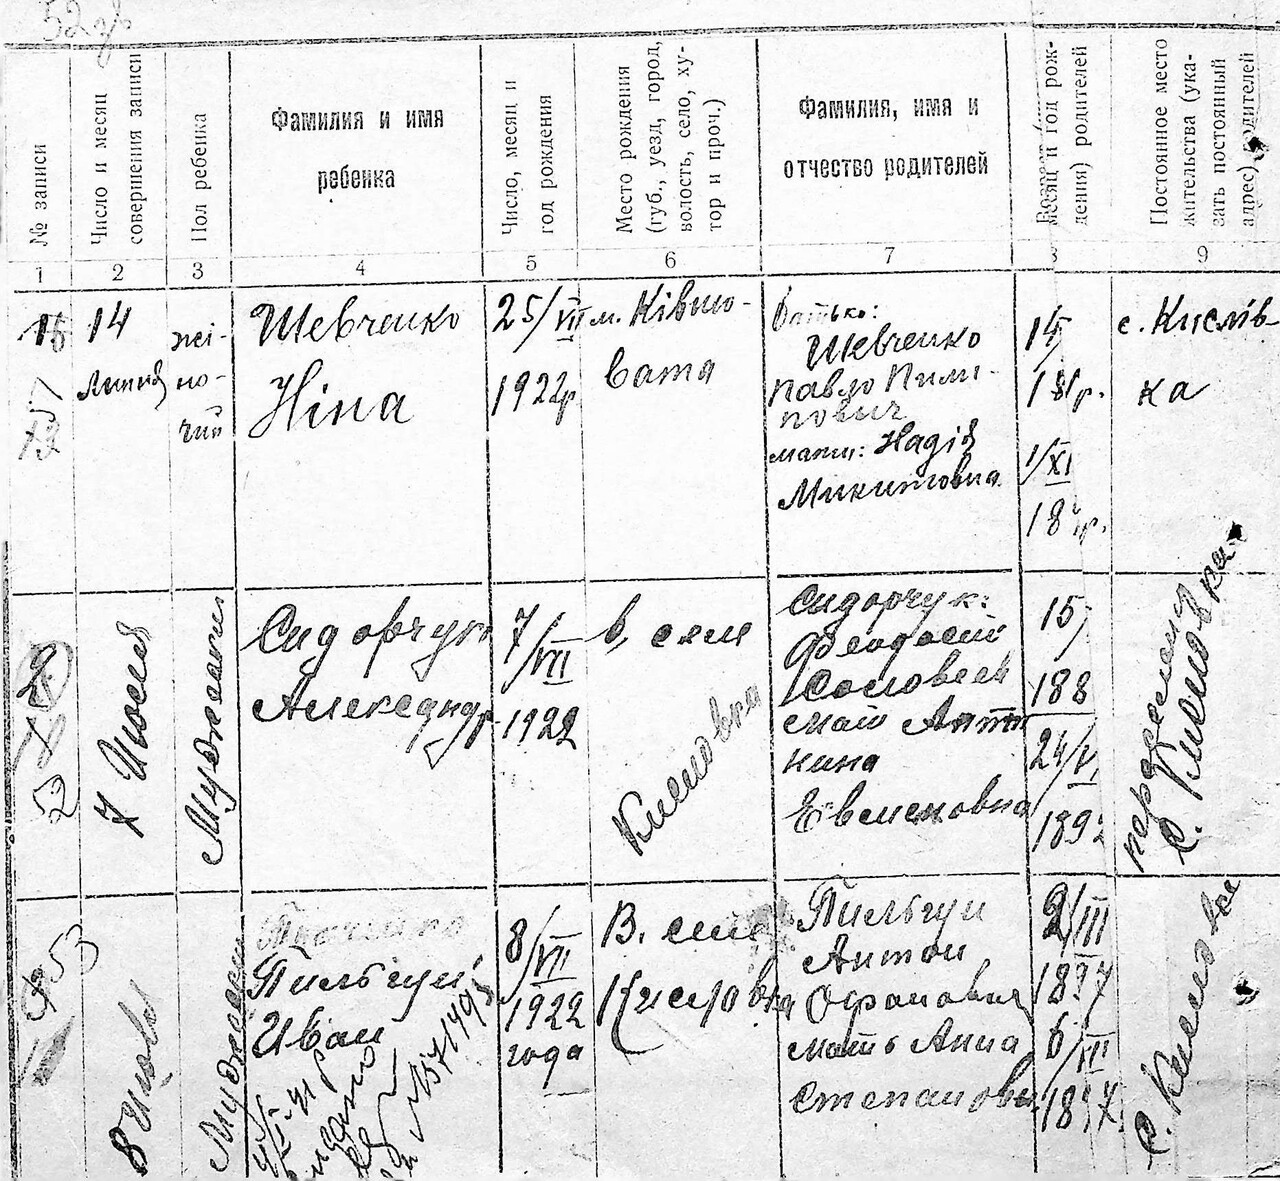 52
№ записи
Число и месяц
совершения записи
Пол ребенка
Фамилия и имя
ребенка
Число, месяц и
год рождения
Место рождения
(губ., уезд, город,
волость, село, ху-
тор и проч.)
Фамилия, имя и
отчество родителей
месяц и год рож-
дения) родителей
Постоянное место
жительства (ука-
зать постоянный
адрес) родителей
1 2 3 4 5 6 7 8 9
14
жі-
но-
чий
Шевченко
Ніна
25/VII
1922р
м. Ківшо-
вата
батько:
Шевченко
Павло Пили-
пович
мати: Надія
Микитовна
15
1/XI
с. Кислів-
ка
7 Июля
Мужской
Сидорчук
Александр
7/VII
1922
в селе
Кисловка
Сидорчук:
Феодосий
мать Анто
нина
Евменовна
15
188
24/V
189
с. Кисловка
53
8 Июля
Мужской
Пильгуй
Иван
№ 571495
8/VII
1922
года
В. селе
Кисловка
Пильгуй
Антон
мать Анна
Степановн
2/III
6/XII
с. Кисловке